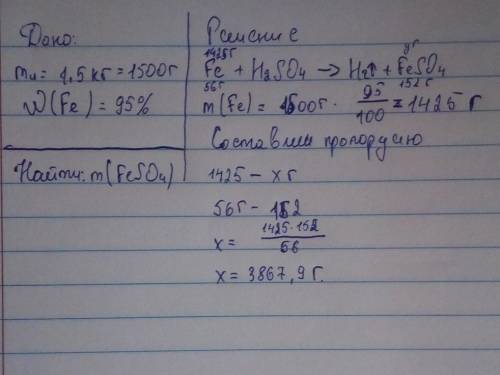 Дано:
mч = 1,5 кг = 1500г
W(Fe) = 95%
Найти: m(FeSO4)
Решение
1425г уг
Fe + H2SO4 → H2↑ + FeSO4
56г 152г
m(Fe) = 1500г · 95/100 = 1425 г
Составим пропорцию
1425 – x г
56г – 152
x = 1425·152/56
x = 3867,9 г.